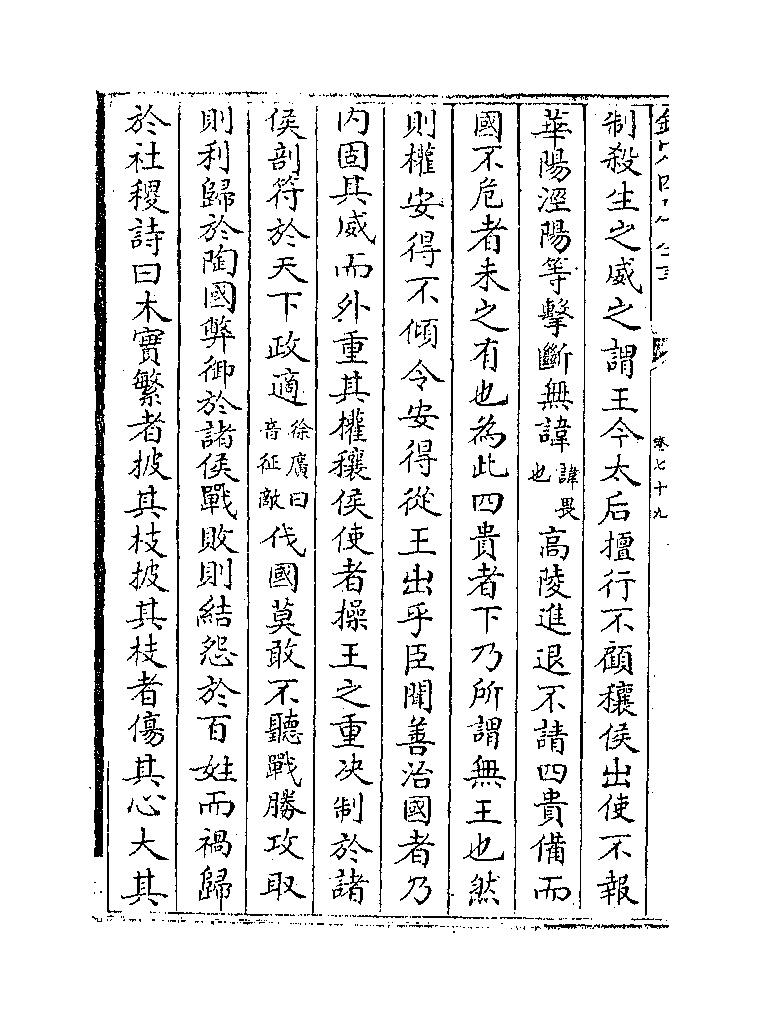 制殺生之威之謂王今太后擅行不顧穰侯出使不報
華陽涇陽等擊斷無諱諱畏也高陵進退不請四貴備而
國不危者未之有也為此四貴者下乃所謂無王也然
則權安得不傾令安得從王出乎臣聞善治國者乃
内固其威而外重其權穰侯使者操王之重决制於諸
侯剖符於天下政適徐廣曰音征敵伐國莫敢不聽戰勝攻取
則利歸於陶國弊御於諸侯戰敗則結怨於百姓而禍歸
於社稷詩曰木實繁者披其枝披其枝者傷其心大其
卷七十九